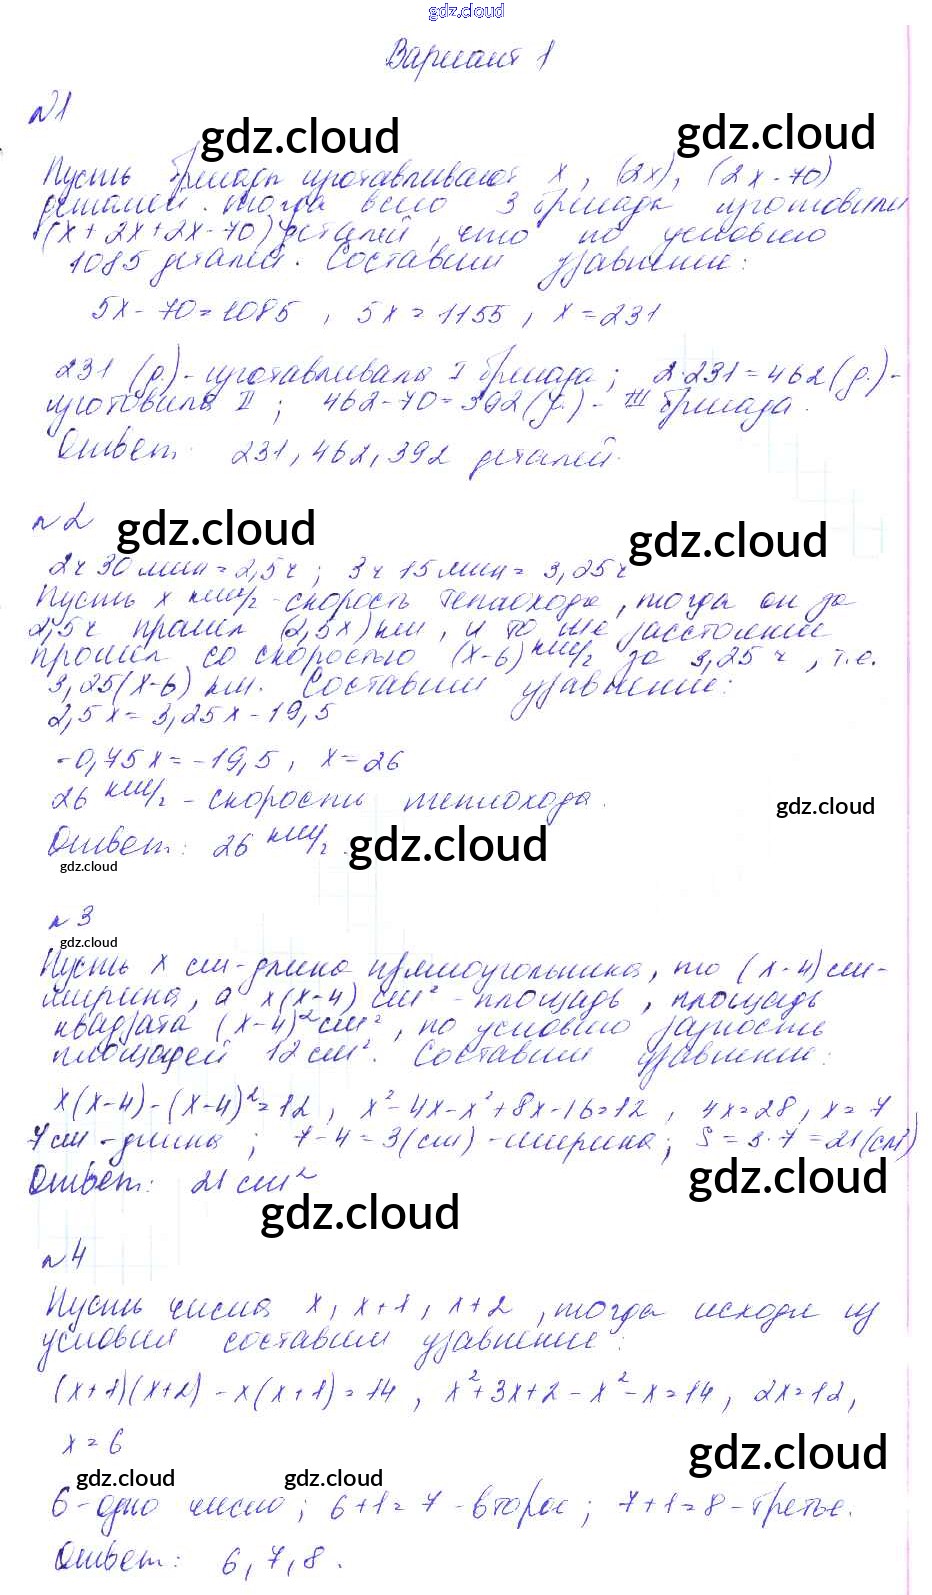 gdz.cloud
Вариант 1
№1
gdz.cloud gdz.cloud
Пусть бригады изготавливают x, (2x), (2x-70)
деталей. Тогда всего 3 бригады изготовили
(x+2x+2x-70) деталей, что по условию
1085 деталей. Составим уравнение:
5x-70=1085, 5x=1155, x=231
231 (д.)-изготавливала I бригада; 2·231=462(д.)-
изготовила II; 462-70=392(д.)-III бригада.
Ответ: 231, 462, 392 деталей.
№2 gdz.cloud gdz.cloud
2ч 30 мин = 2,5ч; 3ч 15 мин = 3,25ч
Пусть x км/ч - скорость теплохода, тогда он за
2,5ч прошел (2,5x) км, и то же расстояние
прошел со скоростью (x-6) км/ч за 3,25 ч, т.е.
3,25(x-6) км. Составим уравнение:
2,5x=3,25x-19,5
-0,75x=-19,5, x=26
26 км/ч - скорость теплохода.
gdz.cloud
Ответ: 26 км/ч.
gdz.cloud
gdz.cloud
№3
gdz.cloud
Пусть x см-длина прямоугольника, то (x-4) см-
ширина, а x(x-4) см² - площадь, площадь
квадрата (x-4)² см², по условию разность
площадей 12 см². Составим уравнение:
x(x-4)-(x-4)²=12, x²-4x-x²+8x-16=12, 4x=28, x=7
7см-длина; 7-4=3(см)-ширина; S=3·7=21(см²)
Ответ: 21 см²
gdz.cloud
gdz.cloud
№4
Пусть числа x, x+1, x+2, тогда исходя из
условия составим уравнение:
(x+1)(x+2)-x(x+1)=14, x²+3x+2-x²-x=14, 2x=12,
x=6
gdz.cloud
gdz.cloud gdz.cloud
6-одно число; 6+1=7-второе; 7+1=8-третье.
Ответ: 6, 7, 8.